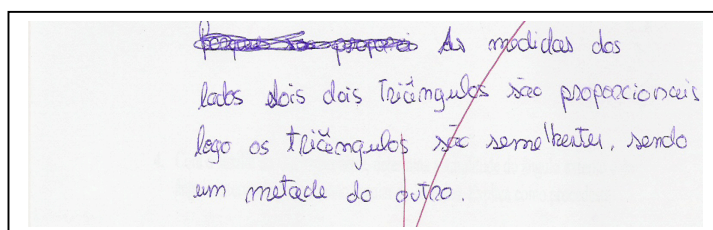 As medidas dos
lados dois dois triângulos são proporcionais
logo os triângulos são semelhentes, sendo
um metade do outro.